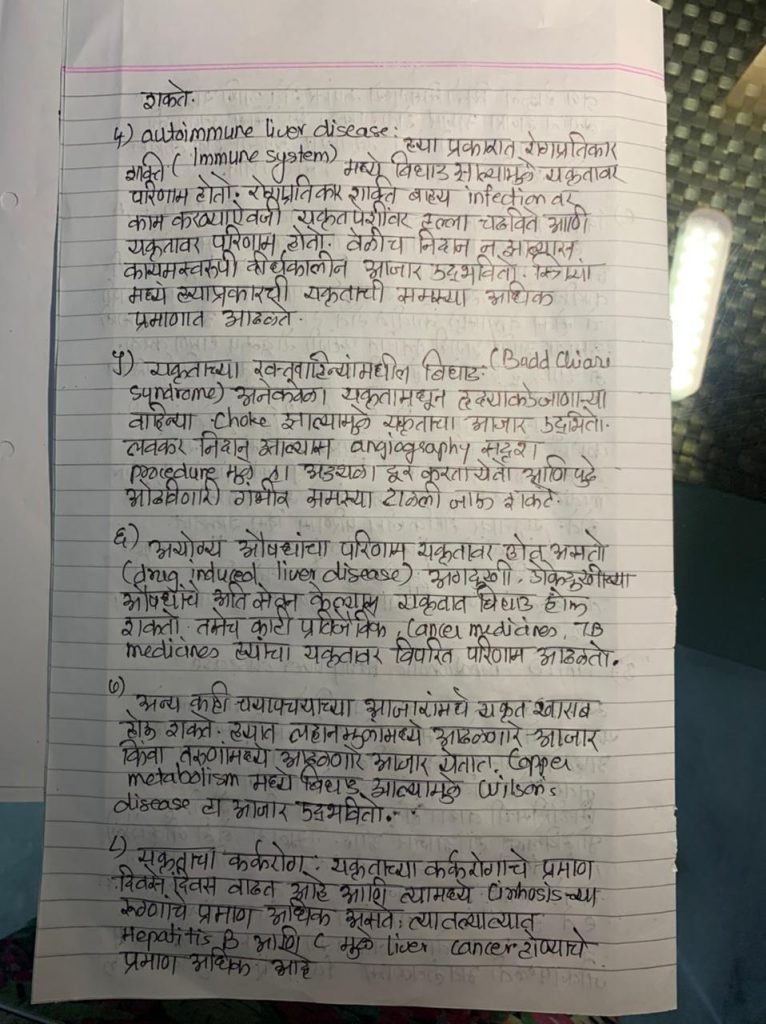 शकते.
४) autoimmune liver disease: ह्या प्रकारात रोगप्रतिकार
शक्ति (Immune system) मध्ये बिघाड झाल्यामुळे यकृतावर
परिणाम होतो. रोगप्रतिकार शक्ति बाह्य infection वर
काम करण्याऐवजी यकृतपेशींवर हल्ला चढविते आणि
यकृतावर परिणाम होतो. वेळीच निदान न झाल्यास
कायमस्वरूपी दीर्घकालीन आजार उद्भवितो. स्त्रियां
मध्ये ह्याप्रकारची यकृताची समस्या अधिक
प्रमाणात आढळते.
५) यकृताच्या रक्तवाहिन्यांमधील बिघाड: (Badd Chiari
Syndrome) अनेकवेळा यकृतामधून हृदयाकडे जाणाऱ्या
वाहिन्या choke झाल्यामुळे यकृताचा आजार उद्भवितो.
लवकर निदान झाल्यास angiography सदृश
procedure मुळे हा अडथळा दूर करता येतो आणि पुढे
ओढविणारी गंभीर समस्या टाळली जाऊ शकते.
६) अयोग्य औषधांचा परिणाम यकृतावर होत असतो
(drug induced liver disease) अंगदुखी, डोकेदुखीच्या
औषधांचे अति सेवन केल्यास यकृतात बिघाड होऊ
शकतो. तसेच काही प्रतिजैविक, Cancer medicines, TB
medicines ह्यांचा यकृतावर विपरित परिणाम आढळतो.
७) अन्य काही चयापचयाच्या आजारांमधे यकृत खराब
होऊ शकते. ह्यात लहान मुलांमध्ये आढळणारे आजार
किंवा तरुणांमध्ये आढळणारे आजार येतात. Copper
metabolism मध्ये बिघाड झाल्यामुळे Wilson's
disease हा आजार उद्भवितो.
८) यकृताचा कर्करोग: यकृताच्या कर्करोगाचे प्रमाण
दिवसें दिवस वाढत आहे आणि त्यामध्ये Cirrhosis च्या
रुग्णांचे प्रमाण अधिक असते. त्यातल्यात्यात
Hepatitis B आणि C मुळे liver cancer होण्याचे
प्रमाण अधिक आहे